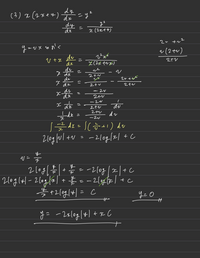 (3) x(2x+y) dy/dx = y²
dy/dx = y²/x(2x+y)
y = vx とおく
v + x dv/dx = v²x²/x(2x+vx)
x dv/dx = v²/2+v - v
x dv/dx = v²/2+v - 2v+v²/2+v
x dv/dx = -2v/2+v
x 1/dx = -2v/2+v 1/dv
1/x dx = 2+v/-2v dv
∫ -2/x dx = ∫(2/v+1) dv
2log|v| + v = -2log|x| + C
v = y/x
2log|y/x| + y/x = -2log|x| + C
2log|y| - 2log|x| + y/x = -2log|x| + C
y/x + 2log|y| = C
y = 0
y = -2xlog|y| + xC